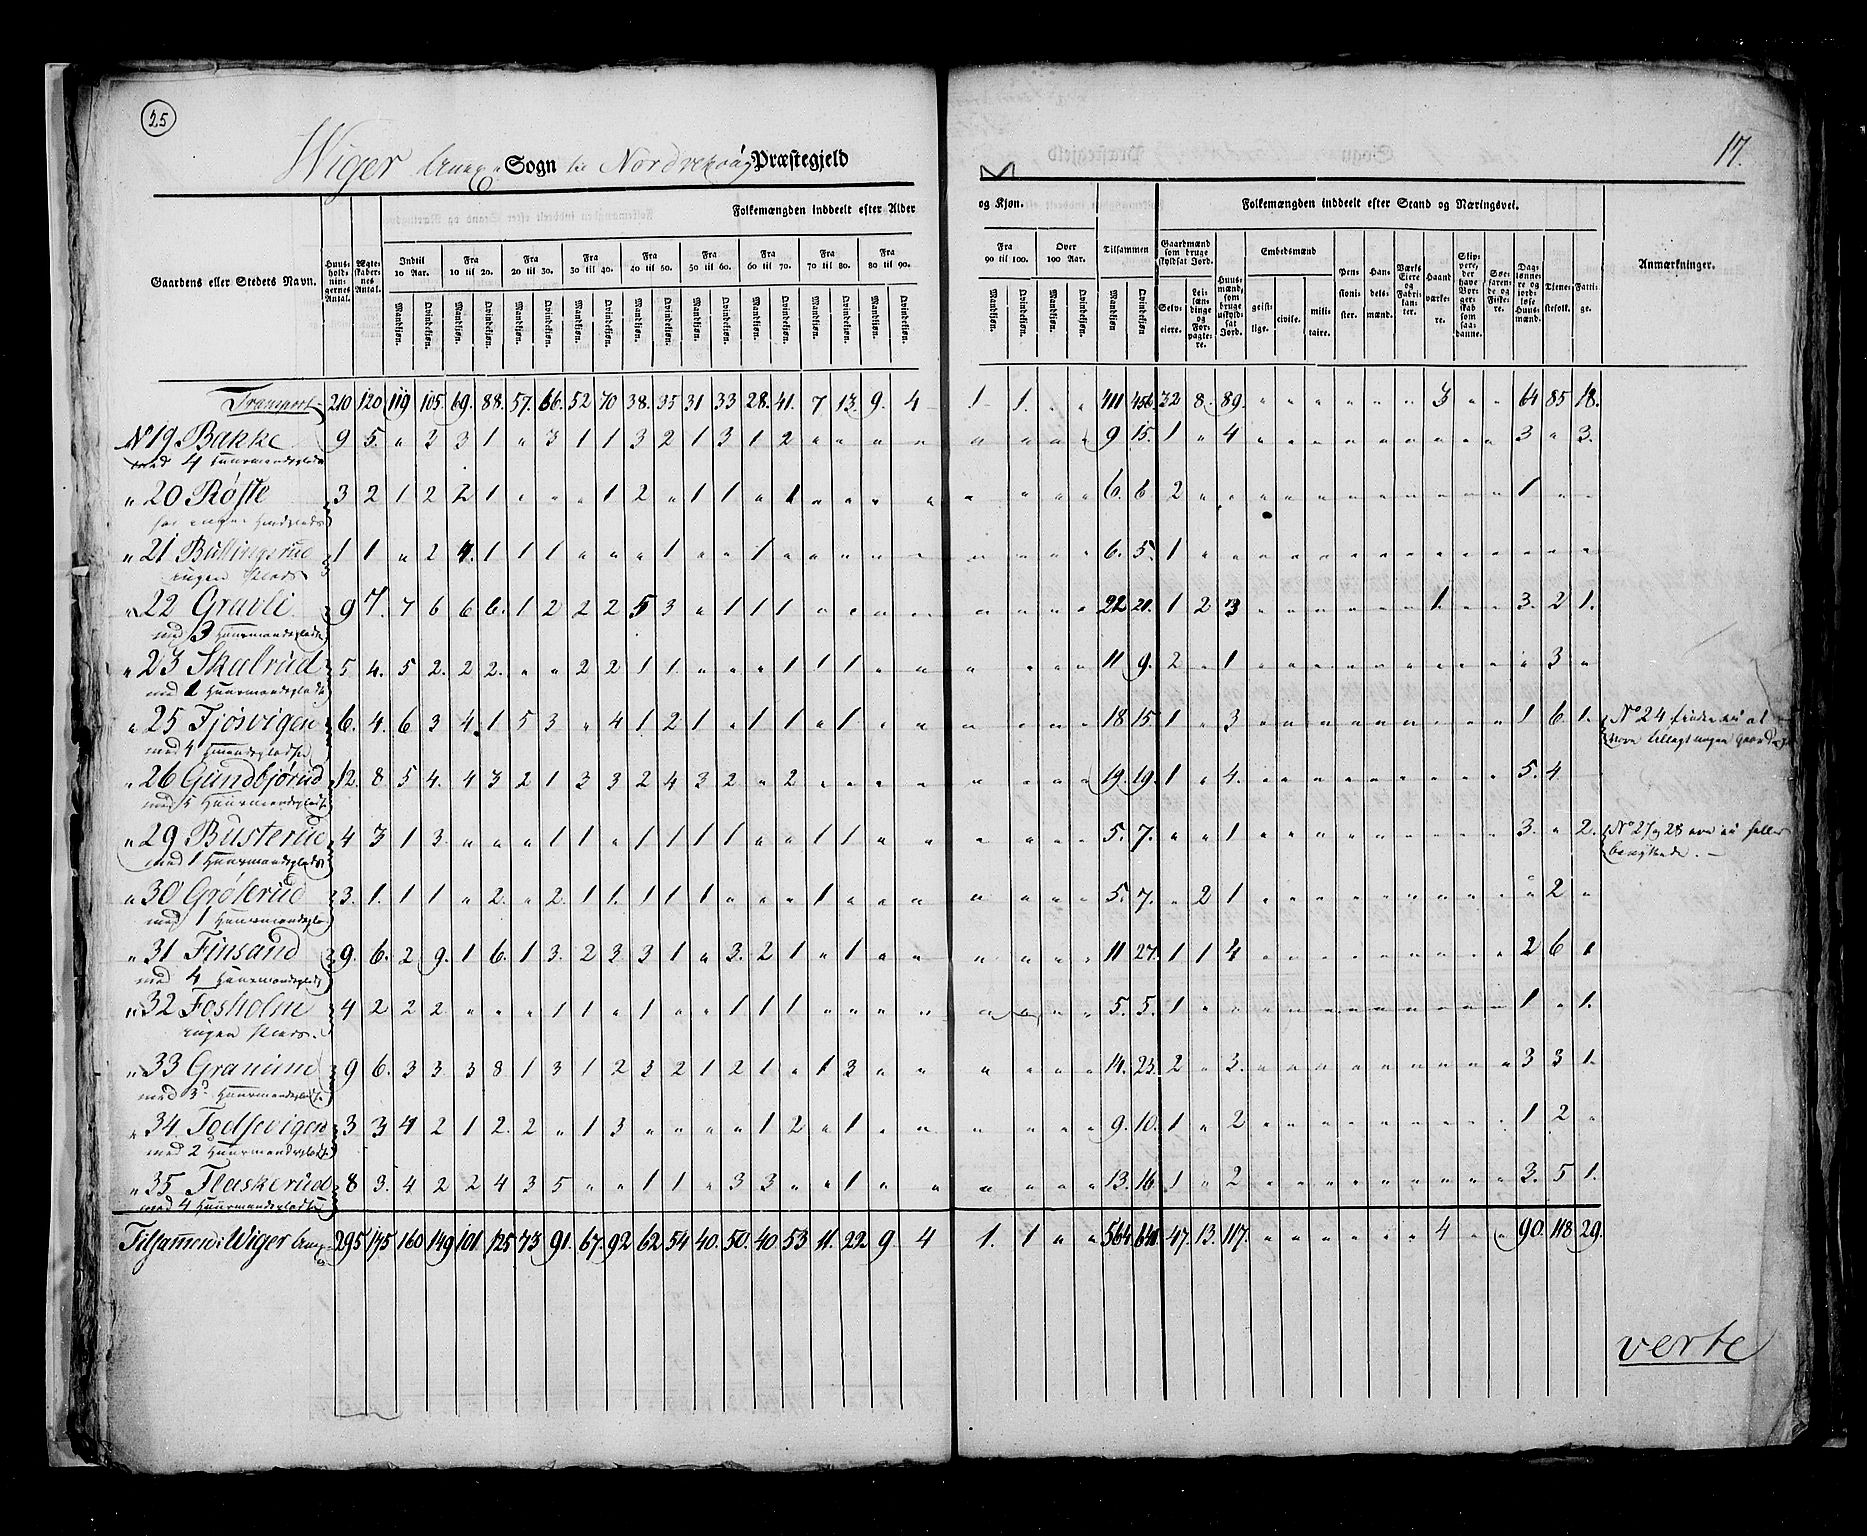 25
17.
Wiger Annex Sogn til Nordrehoug Præstegjeld
Gaardens eller Stedets Navn.
Huus-holdningernes Antal.
Ægteskabernes Antal.
Folkemængden inddeelt efter Alder og Kjøn.
Indtil 10 Aar. Fra 10 til 20. Fra 20 til 30. Fra 30 til 40. Fra 40 til 50. Fra 50 til 60. Fra 60 til 70. Fra 70 til 80. Fra 80 til 90. Fra 90 til 100. Over 100 Aar. Tilsammen
Mandkjøn. Qvindekjøn.
Folkemængden inddeelt efter Stand og Næringsvei.
Gaardmænd som bruge skyldsat Jord. Selveiere. Leilændinge og Forpagtere.
Huusmænd, som bruge uskyldsat Jord.
Embedsmænd geistlige. civile. militaire.
Pensionister. Handelsmænd. Værks Eiere og Fabrikanter. Haandværkere.
Dagslønnere og jordløse Huusmænd. Tjenestefolk. Fattige.
Anmærkninger.
Transport 210 120 119 105 69. 88. 57. 66. 52 70 38. 35 31 33 28. 41. 7 13. 9. 4 1 1. " " 411 456 32 8. 89. " " " " " " " 3 " " 64 85 18.
No 19 Bakke 9 5. " 2 3 1 " 3 1 1 3 2 1 3 1 2 " " " " " " " " 9 15. 1 " 4 " " " " " " " " " " 3 " 3.
med 4 Huusmandsplads
" 20 Røste 3 2 1 2 2 1 " " " 1 2 " 1 1 " 1 " " " " " " " " 6. 6 2 " " " " " " " " " " " " 1 " "
" 21 Bullingsrud 1 1 " 2 4. 1 1 1 " " " 1 " " 1 " " " " " " " " " 6. 5. 1 " " " " " " " " " " " " " " "
ingen Plads
" 22 Gravli 9 7. 7 6 6 6. 1 2 2 2 5 3 " 1 1 1 " " " " " " " " 22 21. 1 2 3 " " " " " " " 1. " " 3. 2 1.
med 3 Huusmandsplads
" 23 Skalrud 5 4. 5 2. 2 2. " " 2 2 1 1 " " " 1 1 1 " " " " " " 11 9. 2 " 1 " " " " " " " " " " " 3 "
" 25 Fjøsvigen 6. 4. 6 3 4. 1 5 3 " 4 1 2 1 " 1 1 " 1 " " " " " " 18 15. 1 " 3 " " " " " " " " " " 1 6 1.
" 26 Gundbjørud 12. 8 5 4. 4 3 2 1 3 3 2 4 3 2 " 2 " " " " " " " " 19. 19. 1 " 4. " " " " " " " " " " 5. 4
med 5 Huusmandsplads
" 29 Busterud 4 3 1 3 " " " 1 1 " 1 1 1 1 " 1 1 " " " " " " " 5. 7. " " 1 " " " " " " " " " " 3. " 2.
med 1 Huusmandsplads
No 27 og 28
" 30 Grøterud 3. 1. 1 1 " 2. " 2. 1 1. 1 1 1 " " " 1 " " " " " " " 5. 7. " 2 1 " " " " " " " " " " " 2 "
med 1 Huusmandsplads
" 31 Finsand 9. 6. 2 9. 1 6. 1 3. 2 3 3 1 " 3. 2 1 " 1 " " " " " " 11 27. 1 1 4 " " " " " " " " " " 2 6 1
med 4 Huusmandsplads
" 32 Fosholm 4 2 2 2 " " " 1 1 " 1 " " 1 1 1 " " " " " " " " 5. 5. 1 " " " " " " " " " " " " 1 " 1.
ingen Plads.
" 33 Granum 9 6. 3 3 3 8 1 3 1 2 3 2 1 2 1 " 1 3 " " " " " " 14. 23. 2 " 3. " " " " " " " " " " 3 3 1.
" 34 Todsevigen 3 3 4 2 1 2. 2 " 1 3 " " " " 1 2 " 1 " " " " " " 9. 10. 1 " 2 " " " " " " " " " " 1 2 "
med 2 Huusmandsplads
" 35 Flaskerud 8 3. 4 2 2 4 3 5 " " 1 1 " 3 3 " " 1 " " " " " " 13. 16 1 " 2 " " " " " " " " " " 3. 5 1.
med 4 Huusmandsplads
Tilsammen i Wiger Annex 295 175 160 149 101. 125 73 91. 67. 92 62. 54 40. 50. 40 53 11. 22. 9 4 1. 1 " " 564 641 47. 13. 117. " " " " " " " 4 " " 90. 118 29.
verte